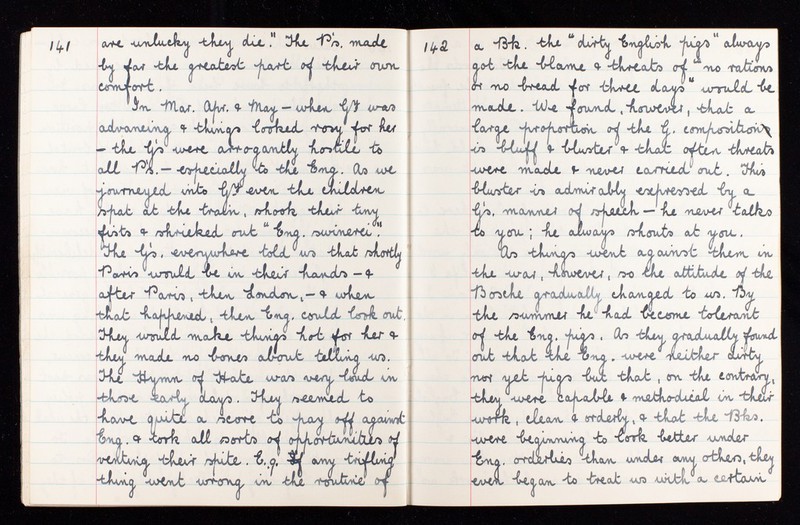 141
are unlucky they die." The P's. made
by far the greatest part of their own
comfort.
In Mar. Apr. & May – when GY was
advancing & things looked rosy for her
– the G's were arrogantly hostile to
all P's. – especially to the Eng. As we
journeyed into GY even the children
spat at the train, shook their tiny
fists & shrieked out "Eng. swinerei."
The G's. everywhere told us that shortly
Paris would be in their hands – &
after Paris, then London, – & when
that happened, then Eng. could look out.
They would make things hot for her &
they made no bones about telling us.
The Hymn of Hate was very loud in
those early days. They seemed to
have quite a score to pay off against
Eng. & took all sorts of opportunities of
venting their spite. E.g. If any trifling
thing went wrong in the routine of
142
a Bk. the "dirty English pigs" always
got the blame & threats of "no rations
or no bread for three days" would be
made. We found, however, that a
large proportion of the G. composition
is bluff & bluster & that often threats
were made & never carried out. This
bluster is admirably expressed by a
G's. manner of speech – he never talks
to you; he always shouts at you.
As things went against them in
the war, however, so the attitude of the
Bosche gradually changed to us. By
the summer he had become tolerant
of the Eng. pigs. As they gradually found
out that the Eng. were neither dirty
nor yet pigs but that, on the contrary,
they were capable & methodical in their
work, clean & orderly, & that the Bks.
were beginning to look better under
Eng. orderlies than under any others, they
even began to treat us with a certain